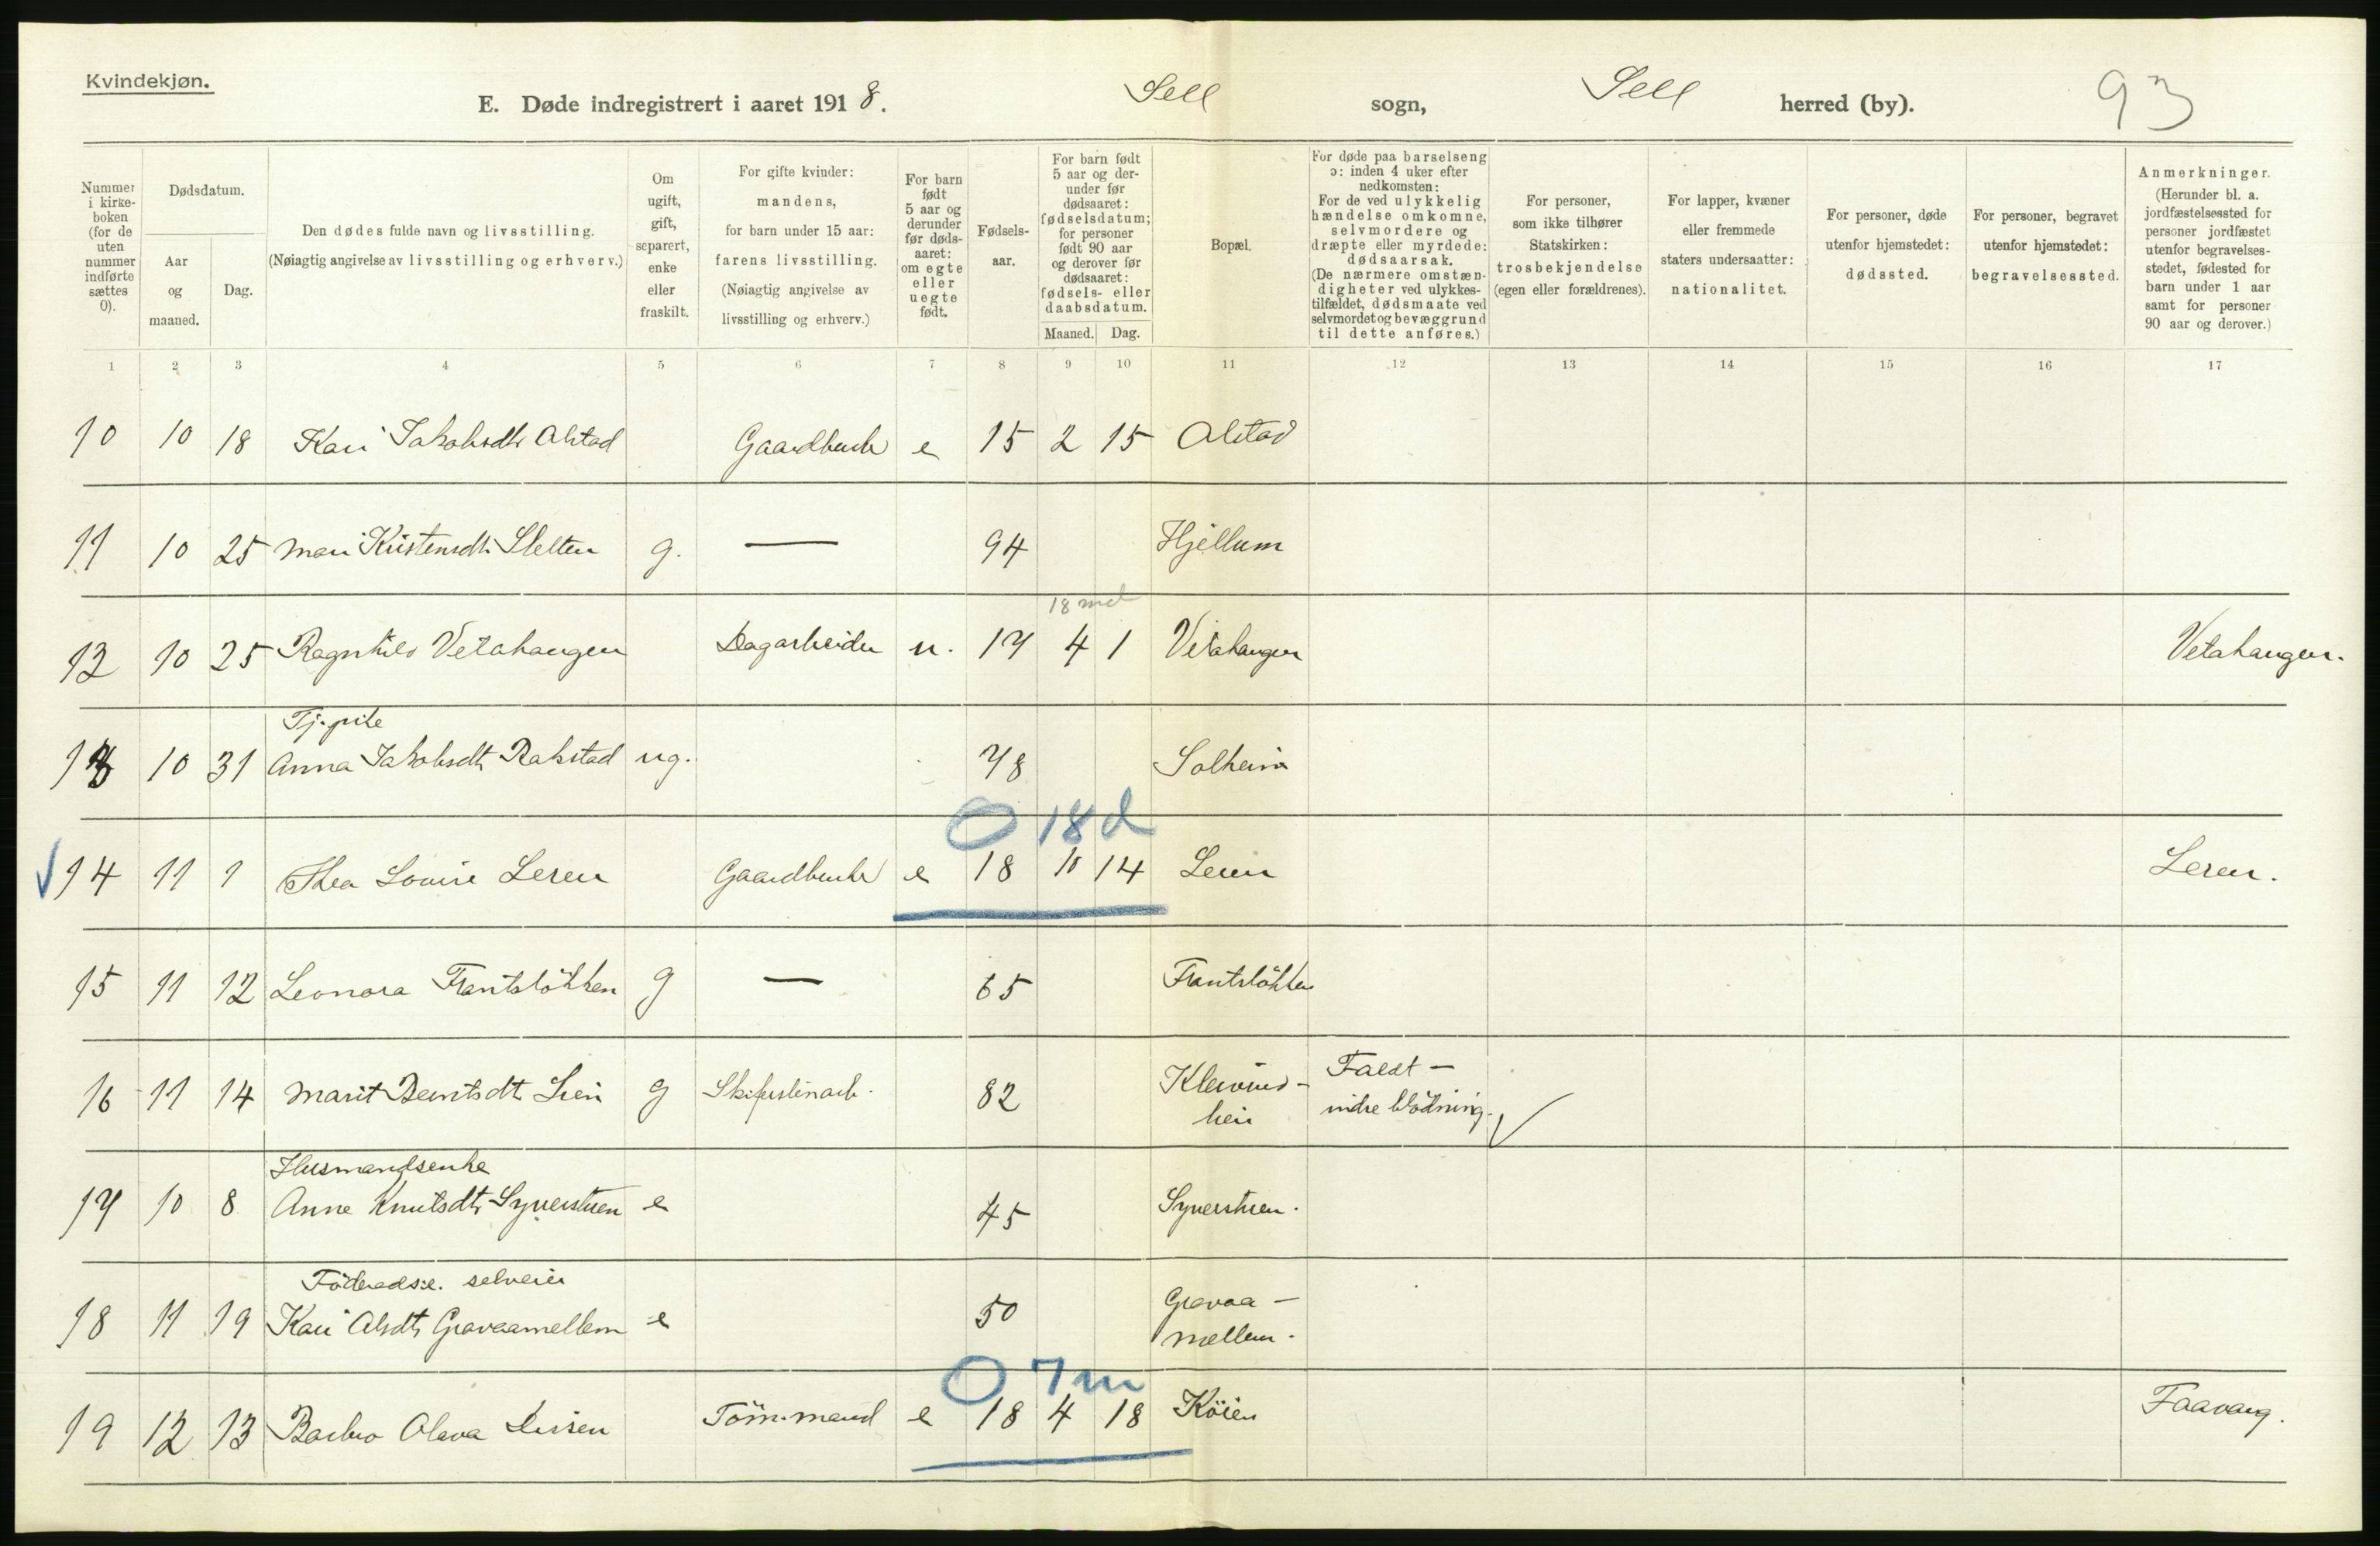 Kvindekjøn.
E. Døde indregistrert i aaret 1918. Sell sogn, Sell herred (by). 93
Nummer i kirke-boken (for de uten nummer indførte sættes 0).
Dødsdatum.
Aar og maaned.
Dag.
Den dødes fulde navn og livsstilling.
(Nøiagtig angivelse av livsstilling og erhverv.)
Om ugift, gift, separert, enke eller fraskilt.
For gifte kvinder: mandens, for barn under 15 aar: farens livsstilling. (Nøiagtig angivelse av livsstilling og erhverv.)
For barn født 5 aar og derunder før døds-aaret: om egte eller uegte født.
Fødsels-aar.
For barn født 5 aar og der-under før dødsaaret: fødselsdatum; for personer født 90 aar og derover før dødsaaret: fødsels- eller daabsdatum.
Maaned. Dag.
Bopæl.
For døde paa barselseng ɔ: inden 4 uker efter nedkomsten: For de ved ulykkelig hændelse omkomne, selvmordere og dræpte eller myrdede: dødsaarsak. (De nærmere omstæn-digheter ved ulykkes-tilfældet, dødsmaate ved selvmordet og bevæggrund til dette anføres.)
For personer, som ikke tilhører Statskirken: trosbekjendelse (egen eller forældrenes).
For lapper, kvæner eller fremmede staters undersaatter: nationalitet.
For personer, døde utenfor hjemstedet: dødssted.
For personer, begravet utenfor hjemstedet: begravelsessted.
Anmerkninger. (Herunder bl. a. jordfæstelsessted for personer jordfæstet utenfor begravelses-stedet, fødested for barn under 1 aar samt for personer 90 aar og derover.)
1 2 3 4 5 6 7 8 9 10 11 12 13 14 15 16 17
10 10 18 Kari Jakobsdtr Alstad Gaardbruker e 15 2 15 Alstad
11 10 25 Mari Kristensdtr Sletten g. — 94 Hjellum
18 md
12 10 25 Ragnhild Vetahaugen Dagarbeider u. 17 4 1 Vetahaugen Vetahaugen.
Tj.pike
13 10 31 Anna Jakobsdtr Rakstad ug. 78 Solheim
0 18 d
14 11 1 Thea Louise Leren Gaardbruker e 18 10 14 Leren Leren.
15 11 12 Leonora Frantsløkken g — 65 Frantsløkken
16 11 14 Marit Berntsdtr Lien g 82 Faldt — indre blødning.
Husmandsenke
17 10 8 Anne Knutsdtr Syverstuen e 45 Syverstuen.
Føderadse. selveier
18 11 19 Kari Olsdtr Gravaamellem e 50 Gravaa-mellem.
0 7 m
19 12 13 Barbro Olava Tøm.mand e 18 4 18 Köien Faavang.